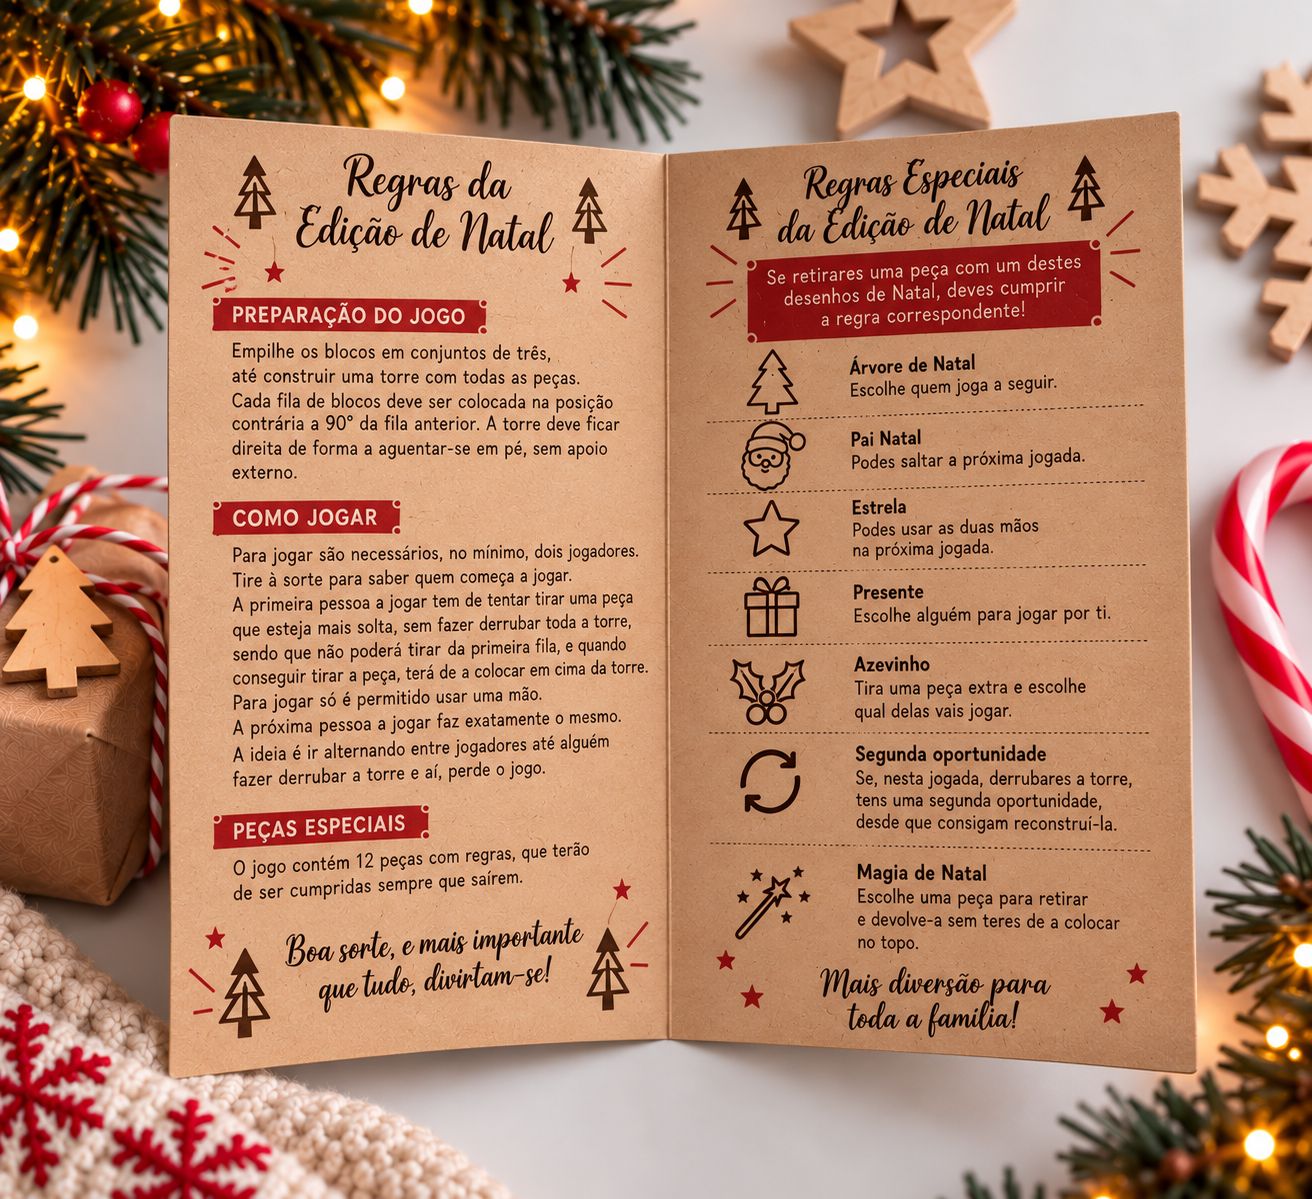 Regras da
Edição de Natal
PREPARAÇÃO DO JOGO
Empilhe os blocos em conjuntos de três,
até construir uma torre com todas as peças.
Cada fila de blocos deve ser colocada na posição
contrária a 90° da fila anterior. A torre deve ficar
direita de forma a aguentar-se em pé, sem apoio
externo.
COMO JOGAR
Para jogar são necessários, no mínimo, dois jogadores.
Tire à sorte para saber quem começa a jogar.
A primeira pessoa a jogar tem de tentar tirar uma peça
que esteja mais solta, sem fazer derrubar toda a torre,
sendo que não poderá tirar da primeira fila, e quando
conseguir tirar a peça, terá de a colocar em cima da torre.
Para jogar só é permitido usar uma mão.
A próxima pessoa a jogar faz exatamente o mesmo.
A ideia é ir alternando entre jogadores até alguém
fazer derrubar a torre e aí, perde o jogo.
PEÇAS ESPECIAIS
O jogo contém 12 peças com regras, que terão
de ser cumpridas sempre que saírem.
Boa sorte, e mais importante
que tudo, divirtam-se!
Regras Especiais
da Edição de Natal
Se retirares uma peça com um destes
desenhos de Natal, deves cumprir
a regra correspondente!
Árvore de Natal
Escolhe quem joga a seguir.
Pai Natal
Podes saltar a próxima jogada.
Estrela
Podes usar as duas mãos
na próxima jogada.
Presente
Escolhe alguém para jogar por ti.
Azevinho
Tira uma peça extra e escolhe
qual delas vais jogar.
Segunda oportunidade
Se, nesta jogada, derrubares a torre,
tens uma segunda oportunidade,
desde que consigam reconstruí-la.
Magia de Natal
Escolhe uma peça para retirar
e devolve-a sem teres de a colocar
no topo.
Mais diversão para
toda a família!